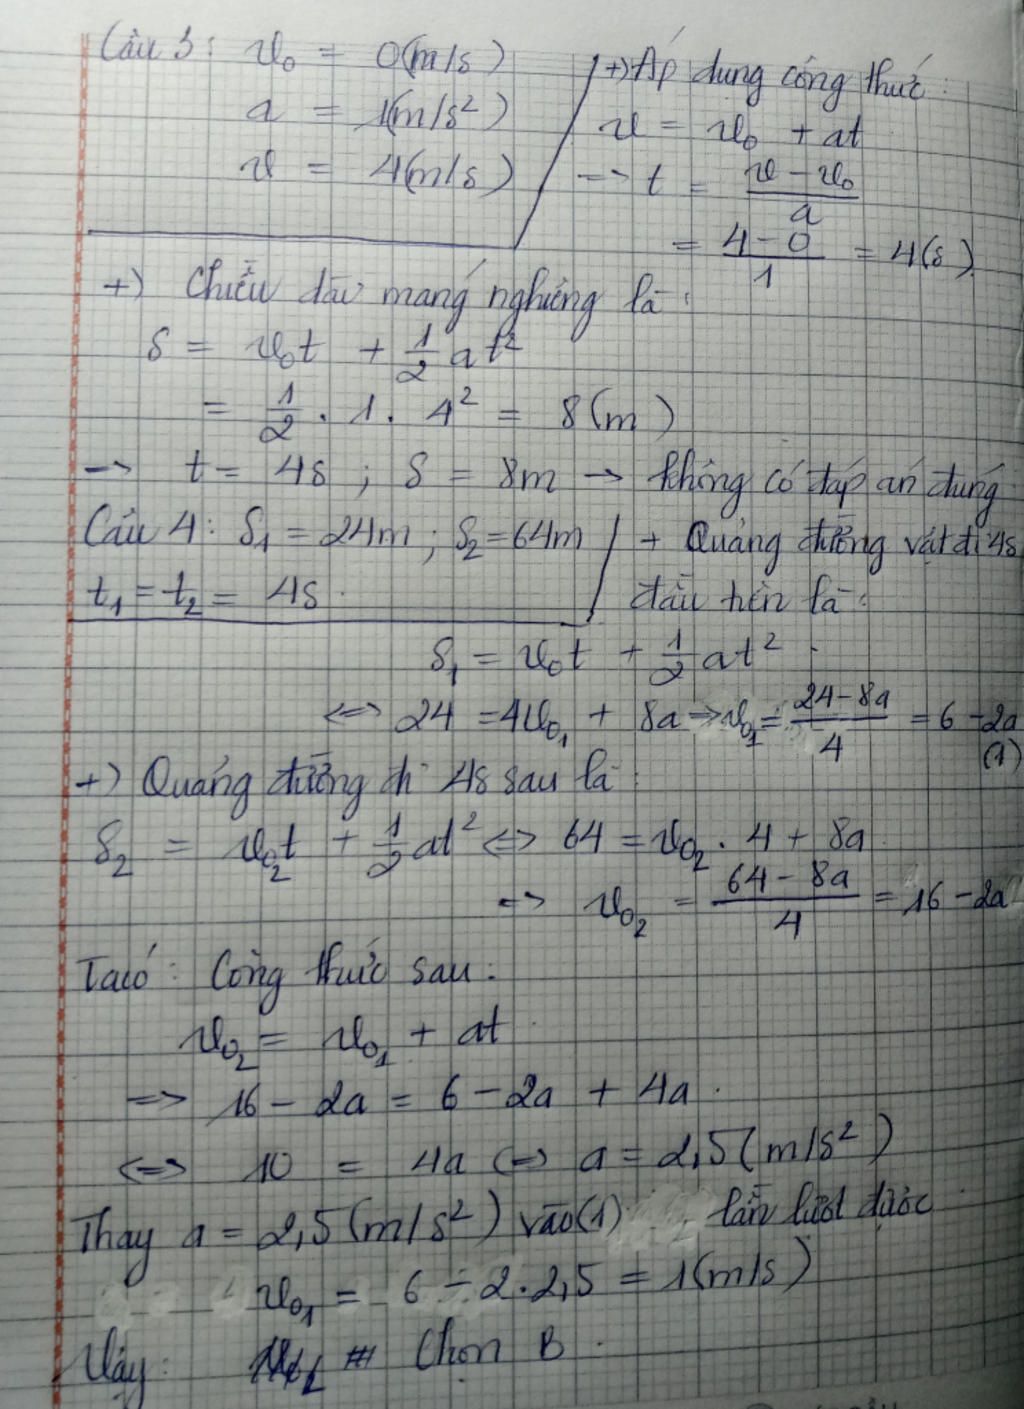 Câu 3: v₀ = 0(m/s)
a = 1(m/s²)
v = 4(m/s)
+) Áp dụng công thức:
v = v₀ + at
→ t = (v - v₀)/a
= (4 - 0)/1 = 4(s)
+) Chiều dài máng nghiêng là:
s = v₀t + 1/2 at²
= 1/2 . 1 . 4² = 8(m)
→ t = 4s ; s = 8m → không có đáp án đúng
Câu 4: s₁ = 24m ; s₂ = 64m
t₁ = t₂ = 4s.
+ Quãng đường vật đi 4s
đầu tiên là:
s₁ = v₀t + 1/2 at²
⇔ 24 = 4v₀₁ + 8a → v₀₁ = (24 - 8a)/4 = 6 - 2a
(1)
+) Quãng đường đi 4s sau là:
s₂ = v₀₂t + 1/2 at² ⇔ 64 = v₀₂ . 4 + 8a
=> v₀₂ = (64 - 8a)/4 = 16 - 2a
Ta có: Công thức sau:
v₀₂ = v₀₁ + at
=> 16 - 2a = 6 - 2a + 4a
⇔ 10 = 4a ⇔ a = 2,5(m/s²)
Thay a = 2,5(m/s²) vào (1) lần lượt được
v₀₁ = 6 - 2.2,5 = 1(m/s)
Vậy: Chọn B.